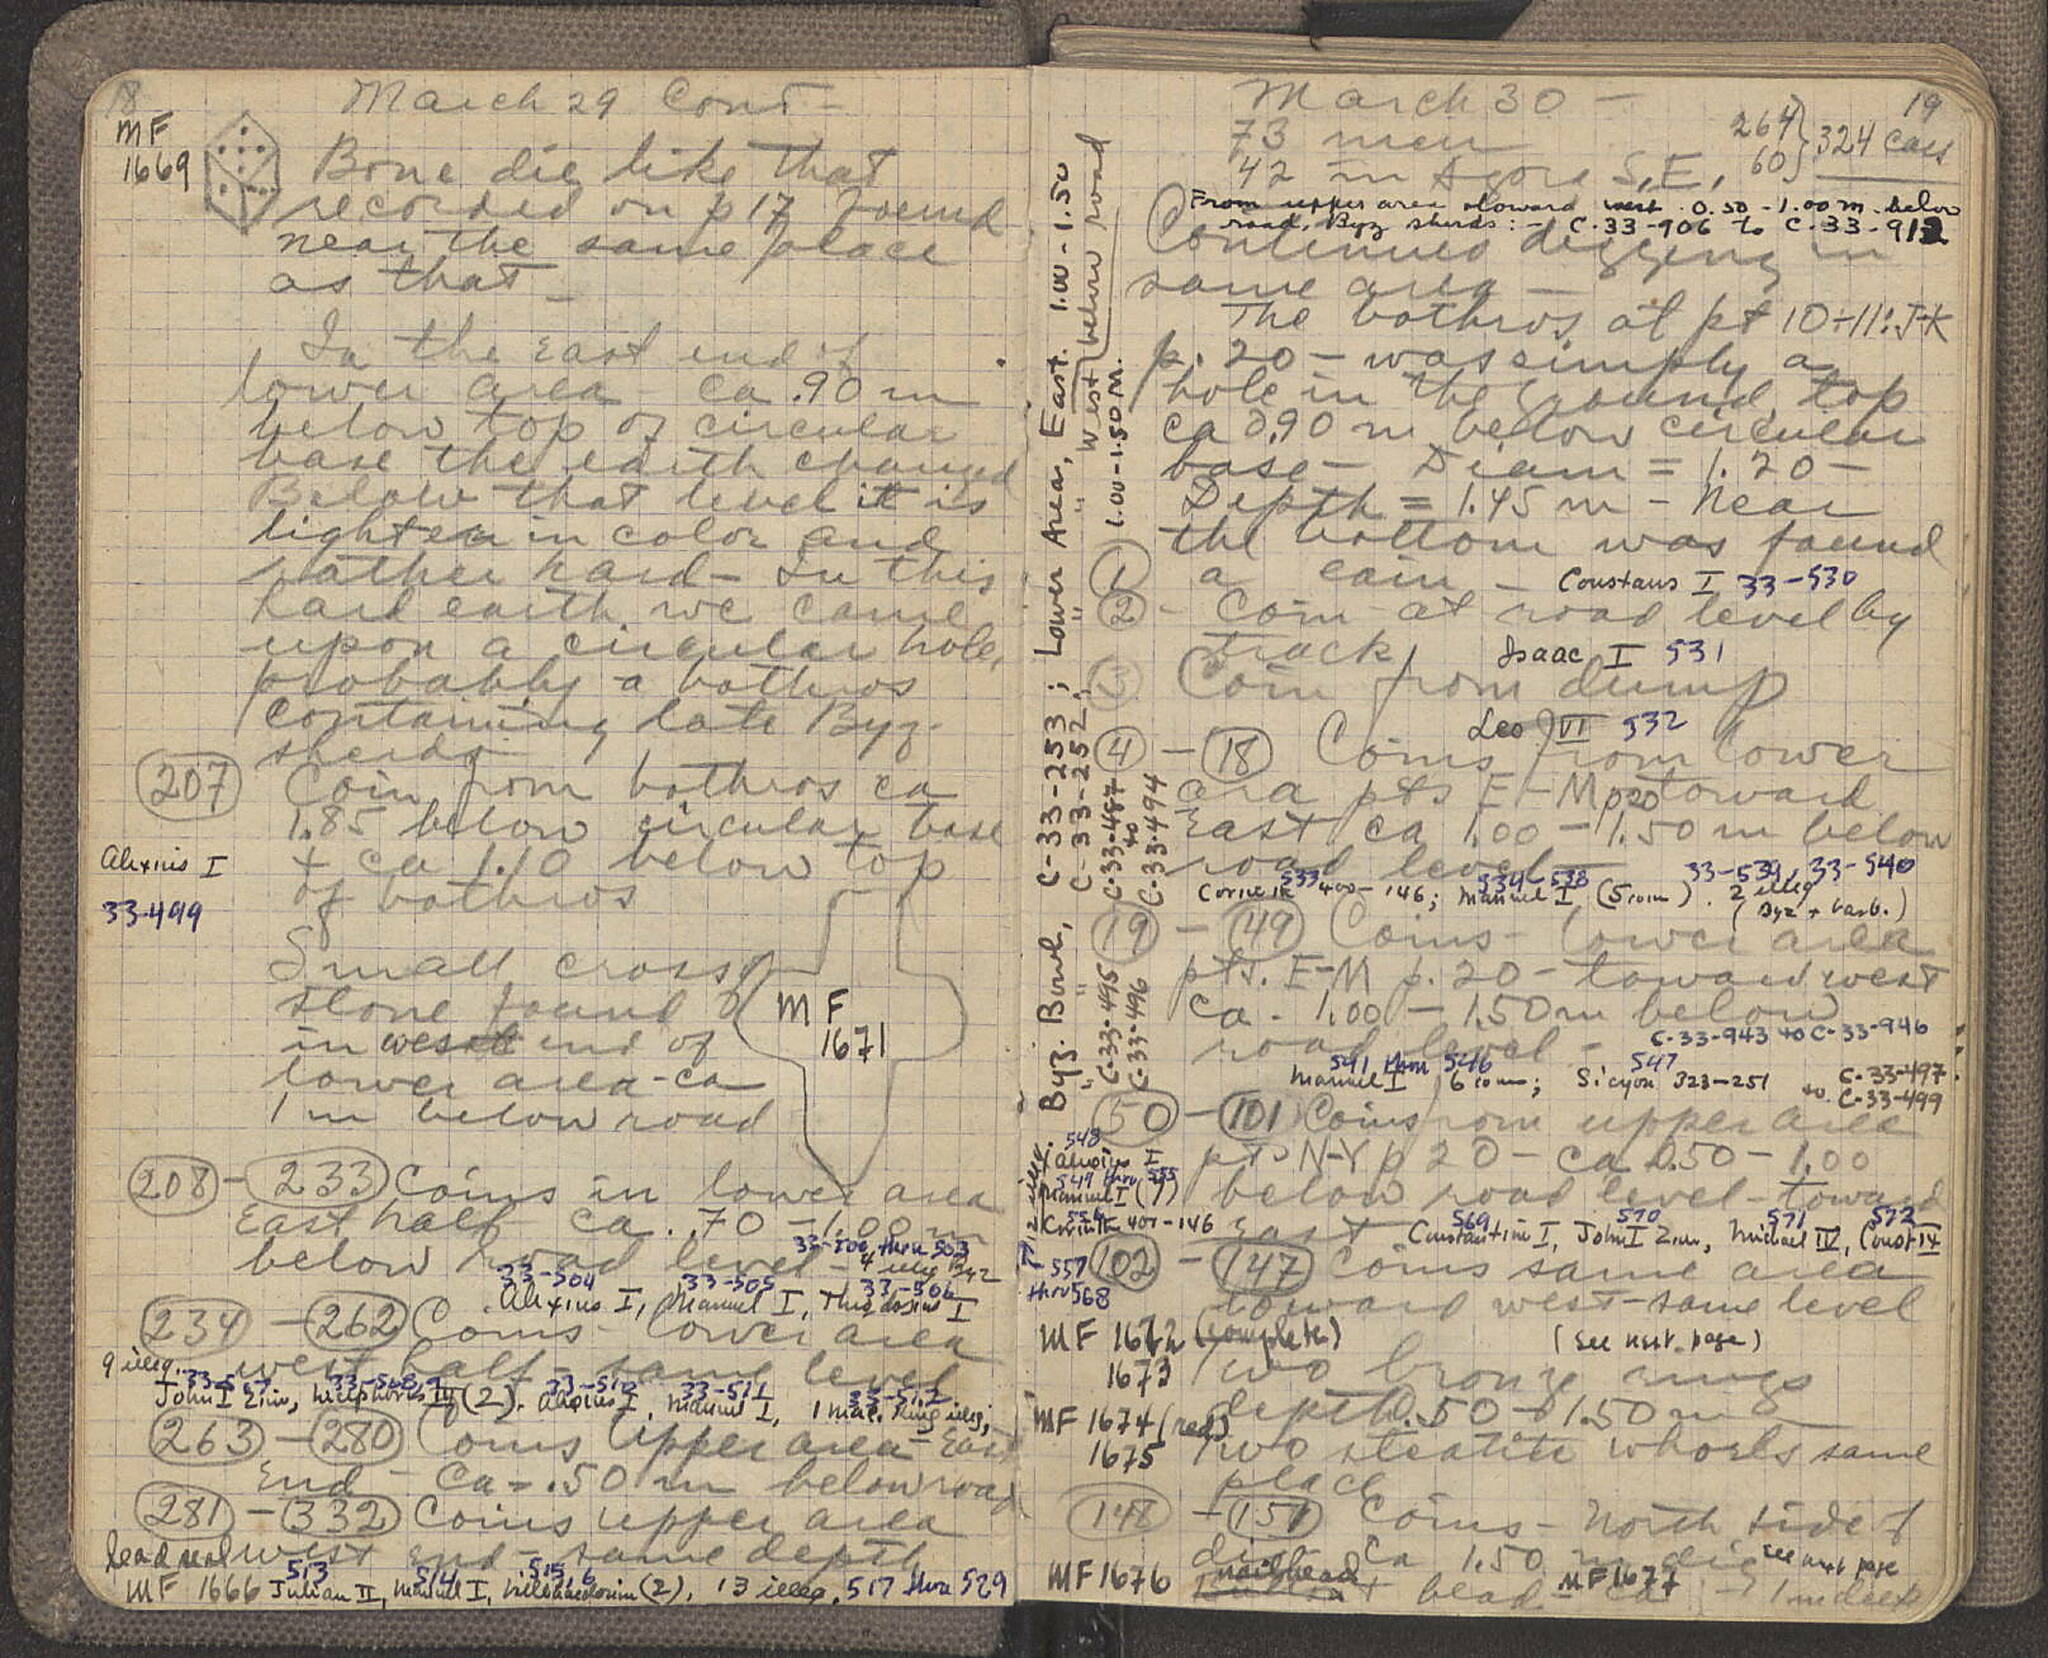 18
March 29 Cont-
MF
1669
Bone die like that
recorded on p 17 found
near the same place
as that-
In the east end of
lower area ca .90 m
below top of circular
base the earth changed
Below that level it is
lighter in color and
rather hard - In this
hard earth we came
upon a circular hole,
probably a bothros
containing late Byz.
sherds
207 Coin from bothros ca
1.85 below circular base
+ ca 1.10 below top
of bothros
Alexius I
33-499
Small cross
stone found
in west end of
lower area - ca
1 m below road
MF
1671
208 - 233 Coins in lower area
East half ca. .70 - 1.00 m
below road level -
33-500 thru 503
4 illeg Byz
33-504 33-505 33-506
Alexius I, Manuel I, Theodosius I
234 - 262 Coins - lower area
west half - same level
9 illeg.
John I Zim, Nicephorus III (2), Alexius I, Manuel I, 1 Mac. King illeg;
263 - 280 Coins Upper area - East
End - Ca - .50 m below road
281 - 332 Coins upper area
west end - same depth
lead seal
MF 1666
513 514 515, 6
Julian II, Manuel I, (2), 13 illeg. 517 thru 529
19
March 30 -
73 men
42 in Agora S.E.
264
60 } 324 cars
From upper area toward west 0.50 - 1.00 m. below
road, Byz sherds: - C-33-906 to C-33-912
Continued digging in
same area -
The bothros at pt 10-11:J-K
p. 20 - was simply a
hole in the ground, top
ca 0.90 m below circular
base - Diam = 1.20 -
Depth = 1.45 m - Near
the bottom was found
1 a coin - Constans I 33-530
2 - Coin at road level by
track Isaac I 531
3 Coin from dump
Leo VI 532
4 - 18 Coins from lower
area pts E-M p 20 toward
East ca 1.00 - 1.50 m below
road level
533 534-538 33-539, 33-540
Corinth 400-146; Manuel I (5 coins). 2 illeg
(Byz + barb.)
19 - 49 Coins - lower area
pts. E-M p. 20 - toward west
Ca. 1.00 - 1.50 m below
road level -
C-33-943 to C-33-946
541 thru 546 547
Manuel I, 6 coins; Sicyon 323-251
C-33-497
to C-33-499
50 - 101 Coins from upper area
pts N-Y p 20 - ca 0.50 - 1.00
below road level - toward
East
548
Alexius I
549 thru 555
Manuel I (7)
556
Corinth 400-146
569 570 571 572
Constantine I, John I Zim, Michael IV, Const IX
12 illeg.
557
thru 568
102 - 147 Coins same area
toward west - same level
(see next page)
MF 1672 (complete)
1673 Two bronze rings
depth 0.50 - 1.50 m
MF 1674 (red)
1675 Two steatite whorls same
place
148 - 151 Coins - North side of
dig Ca 1.50 m dig see next page
MF 1676 nailhead
MF 1677
bead - ca 1 m deep
Byz. Bowl, C-33-253; Lower Area, East. 1.00 - 1.50
" " C-33-252; " " West } below road
C-33-487
to
C-33-494
1.00-1.50 M.
C-33-495
C-33-496